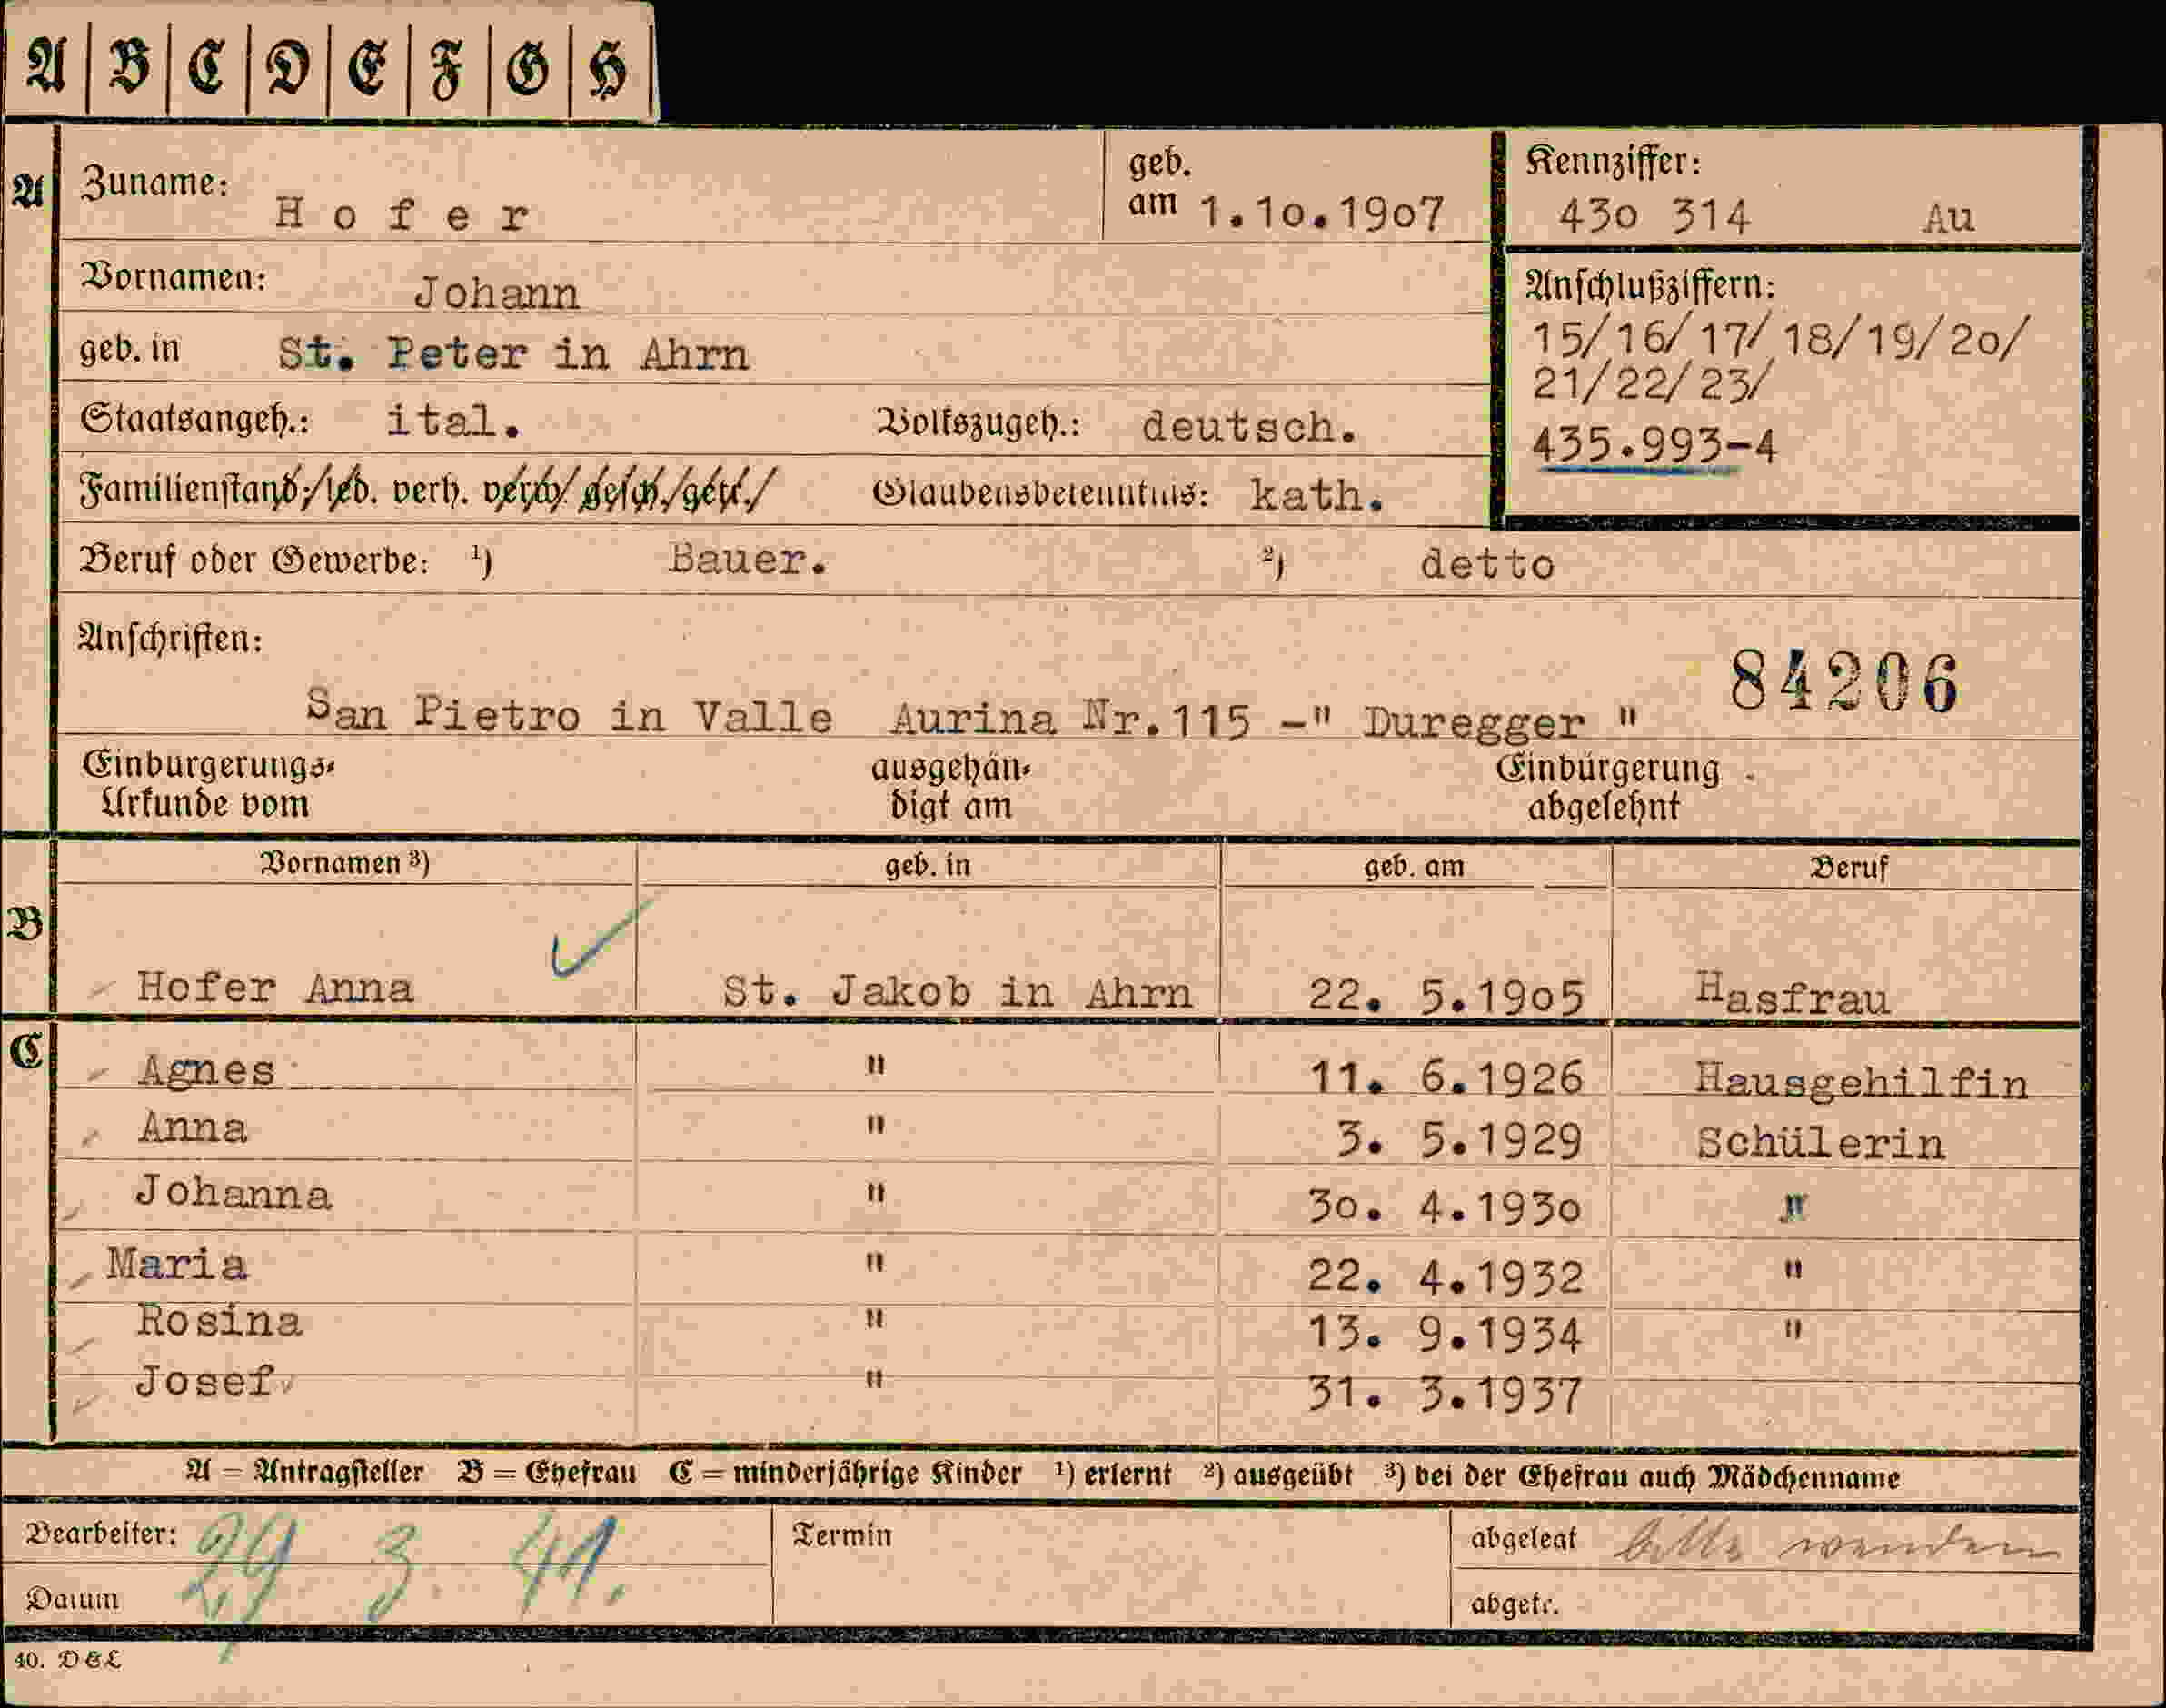 A B C D E F G H
A Zuname: Hofer geb. am 1.10.1907 Kennziffer: 430 314 Au
Vornamen: Johann Anschlußziffern:
15/16/17/18/19/20/
geb. in St. Peter in Ahrn 21/22/23/
Staatsangeh.: ital. Volkszugeh.: deutsch. 435.993-4
Familienstand: led. verh. verw. gesch. getr. Glaubensbekenntnis: kath.
Beruf oder Gewerbe: ¹) Bauer. ²) detto
Anschriften: 84206
San Pietro in Valle Aurina Nr.115 -" Duregger "
Einbürgerungs- ausgehän- Einbürgerung
Urkunde vom digt am abgelehnt
Vornamen ³) geb. in geb. am Beruf
B
Hofer Anna St. Jakob in Ahrn 22. 5.1905 Hasfrau
C Agnes " 11. 6.1926 Hausgehilfin
Anna " 3. 5.1929 Schülerin
Johanna " 30. 4.1930 "
Maria " 22. 4.1932 "
Rosina " 13. 9.1934 "
Josef " 31. 3.1937
A = Antragsteller B = Ehefrau C = minderjährige Kinder ¹) erlernt ²) ausgeübt ³) bei der Ehefrau auch Mädchenname
Bearbeiter: 29 3. 41. Termin abgelegt bitte wenden
Datum abgefr.
40. DEL